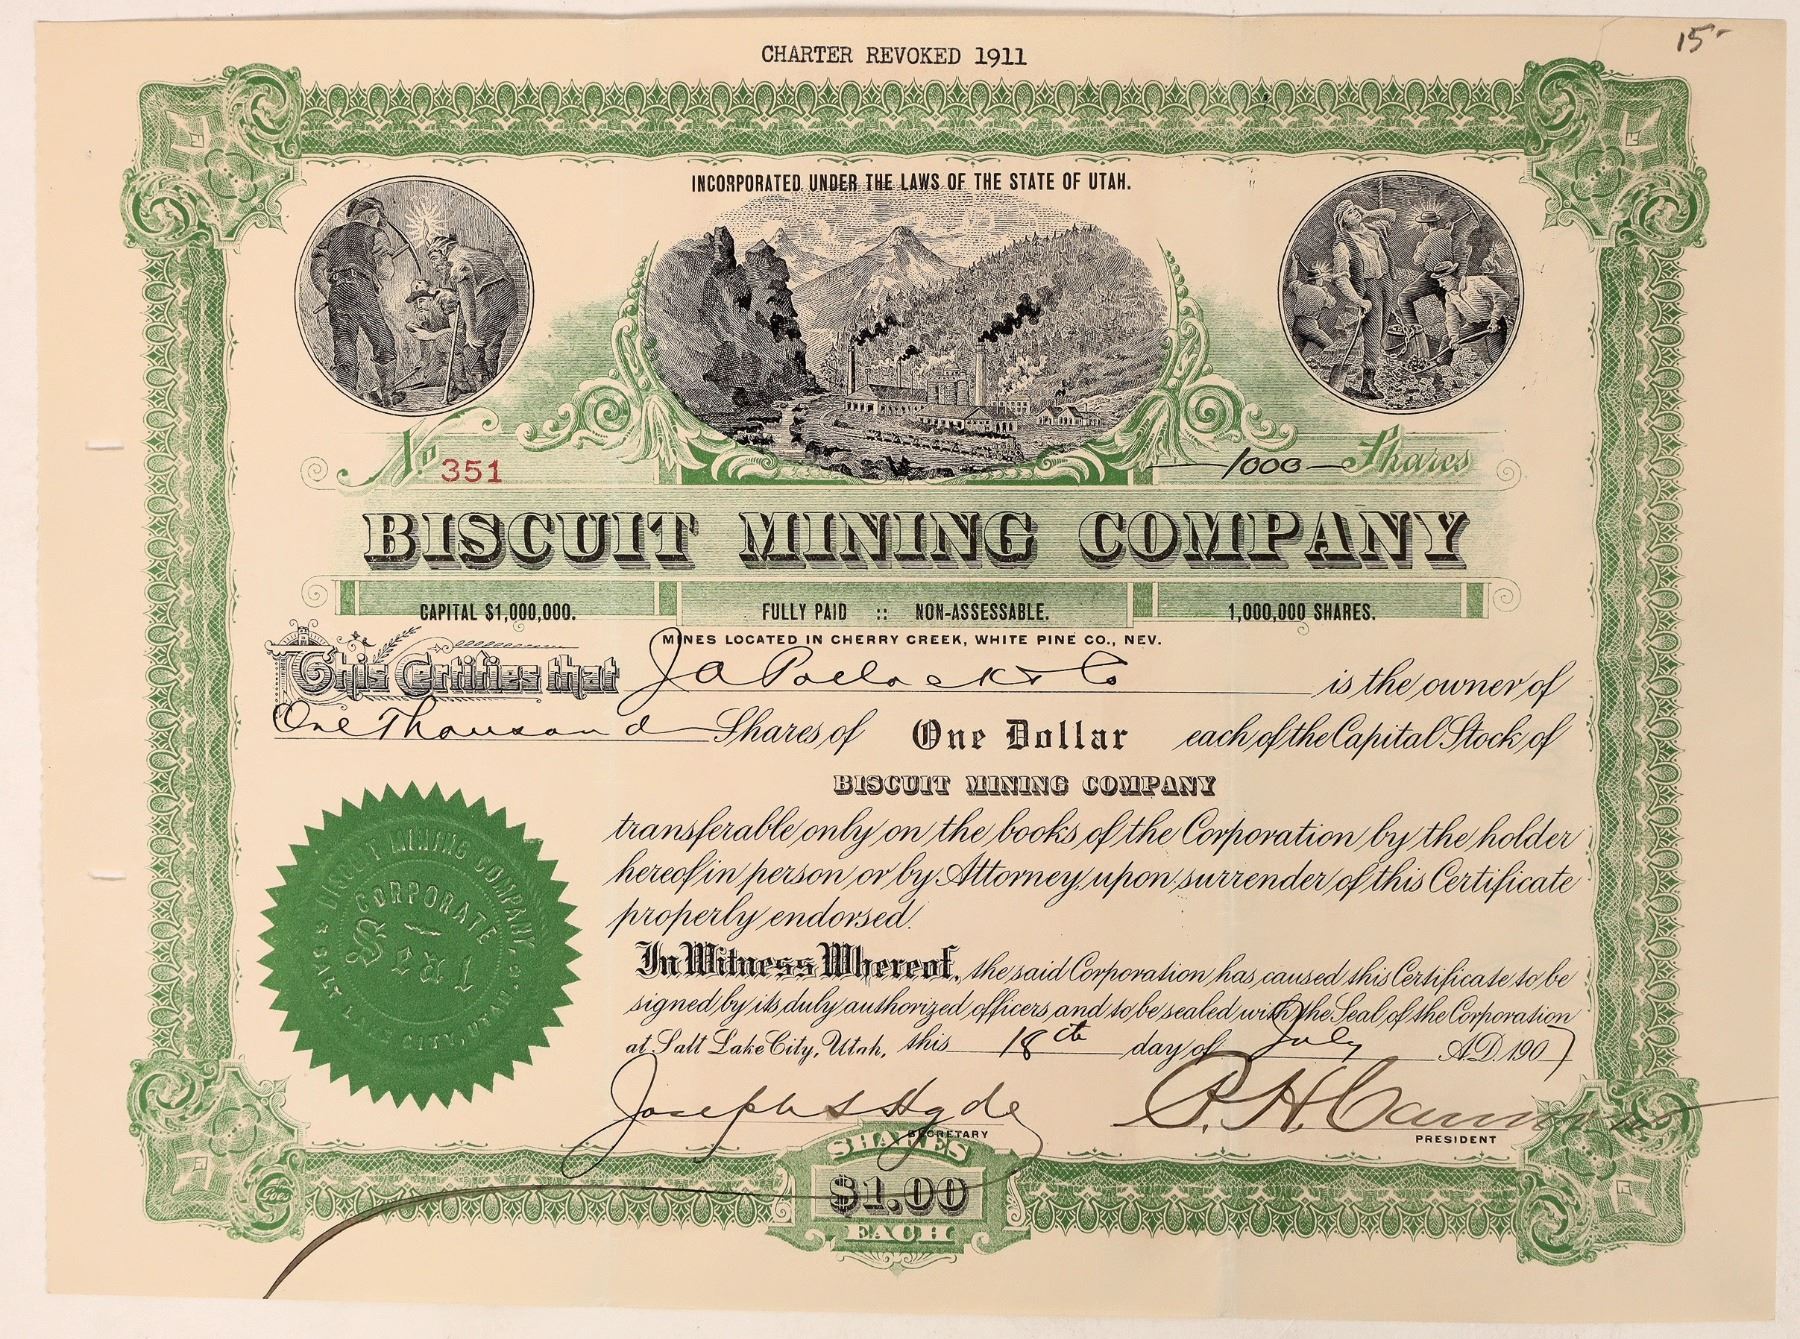 15-
CHARTER REVOKED 1911
INCORPORATED UNDER THE LAWS OF THE STATE OF UTAH.
No 351
1000 Shares
BISCUIT MINING COMPANY
CAPITAL $1,000,000. FULLY PAID :: NON-ASSESSABLE. 1,000,000 SHARES.
MINES LOCATED IN CHERRY CREEK, WHITE PINE CO., NEV.
This Certifies that J A Pollock & Co is the owner of
One Thousand Shares of One Dollar each of the Capital Stock of
BISCUIT MINING COMPANY
transferable only on the books of the Corporation by the holder
hereof in person or by Attorney, upon surrender of this Certificate
properly endorsed.
In Witness Whereof, the said Corporation has caused this Certificate to be
signed by its duly authorized officers, and to be sealed with the Seal of the Corporation
at Salt Lake City, Utah, this 18th day of July A.D. 1907
BISCUIT MINING COMPANY,
CORPORATE
Seal
SALT LAKE CITY, UTAH.
Joseph S Hyde
SECRETARY
P. H. Cannon
PRESIDENT
SHARES
$1.00
EACH
Goes